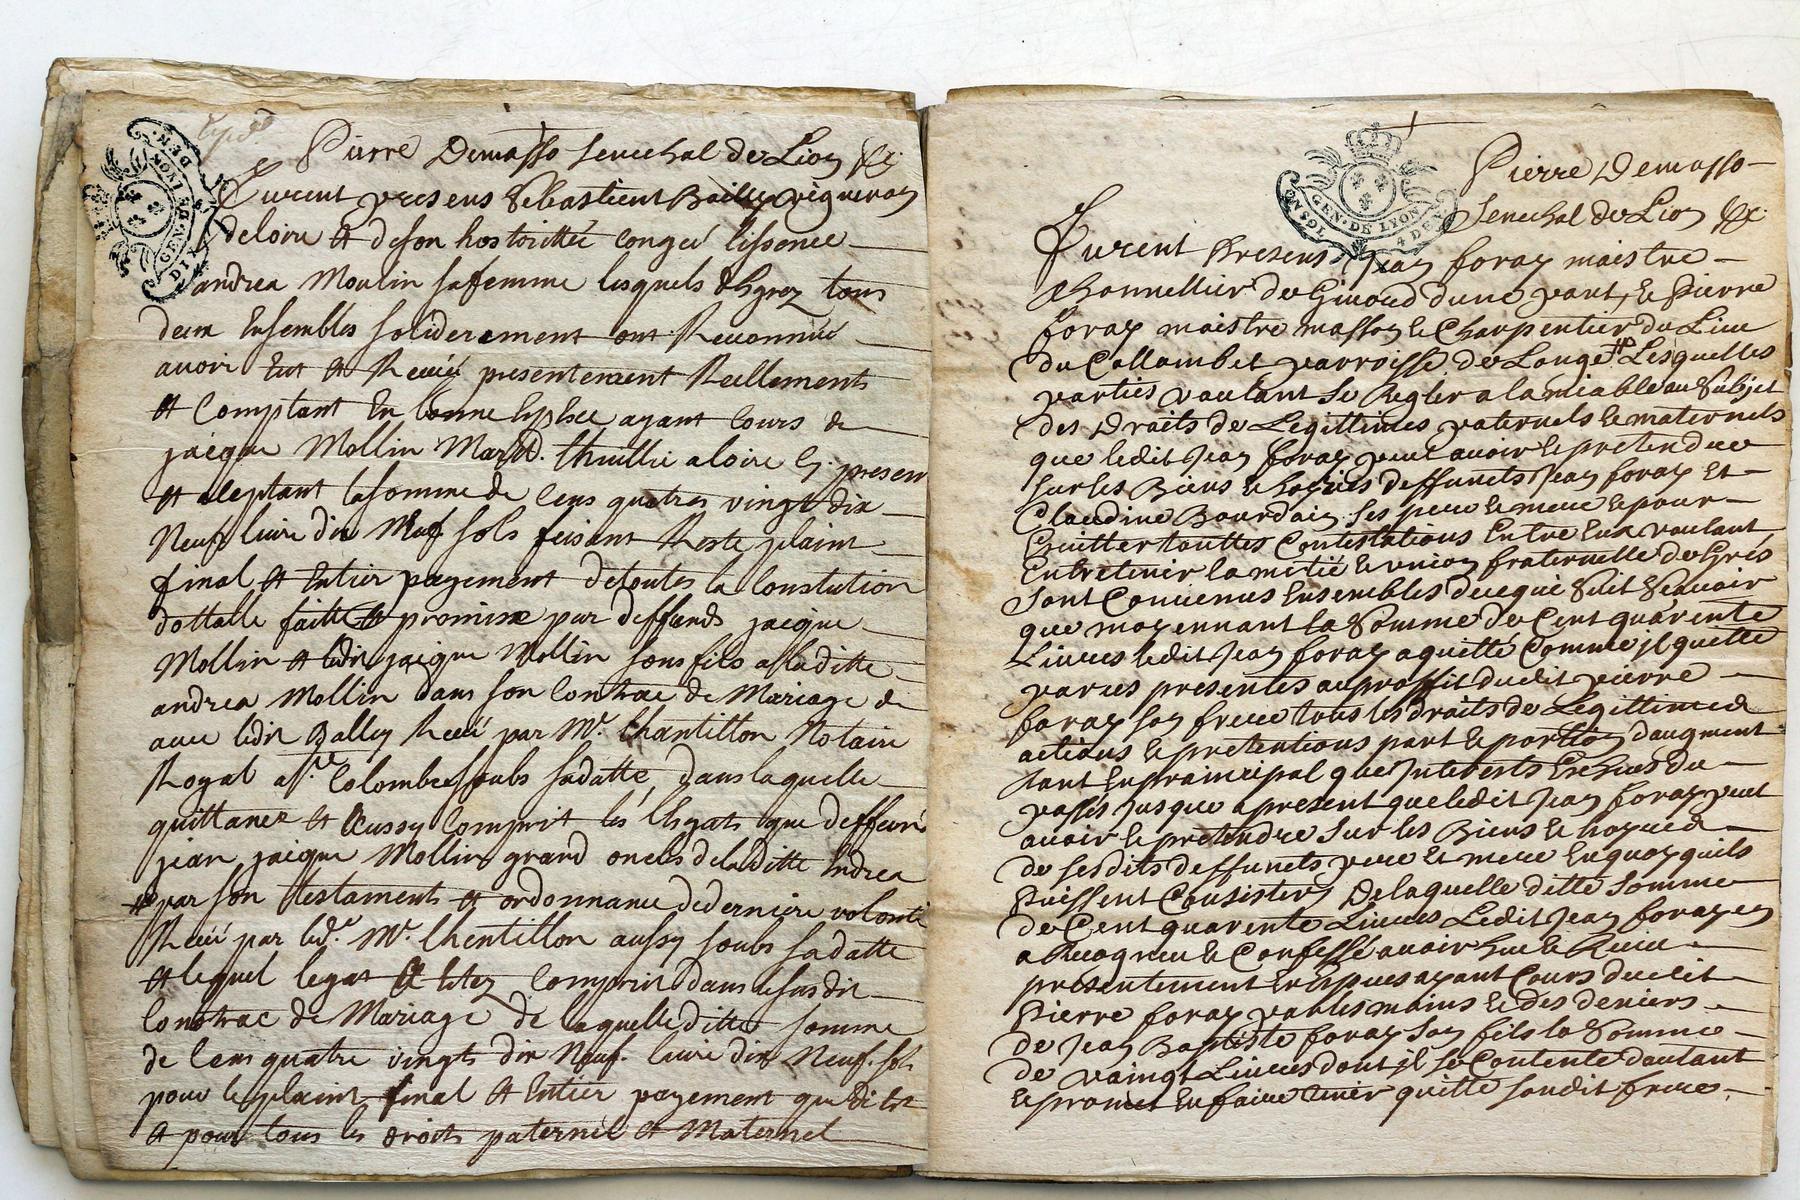 Pierre Demasso senechal de Lion &c
furent presens Sebastient Bailly vigneron
de loire et de son hostorittée congeé lissence
andrea Moulin sa femme lesquels de grez tous
deux Ensembles soliderement ont Reconnüe
avoir Eut et Receü presentement Reellements
et Comptant En bonne Espesse ayant Cours de
jaique Mollin Marchd. thuillie a loire Cy. present
et aleptant la somme de Cens quatres vingt dix
Neuf livre dix Neuf sols feisant Reste plaint
final et Entier payement de toutes la Constution
dottalle faitte et promise par deffunds jacque
Mollin et ledit jaique Mollin sons fils a la ditte
andrea Mollin dans son Contrac de Mariage de
avec ledit Bally Receü par Mr. Chantillon Notaire
Royal a Ste Colombe soubs sa datte, dans laquelle
quittance et Aussy Comprit les legats que deffeun
jean jaique Mollin grand oncls de la ditte Andrea
par son testament et ordonnance de dernière volonté
Receü par led. Mr. Chentillon aussy soubs sa datte
et lequel legat et Estez Comprit dans le susdit
Contrac de Mariage de laquelle ditte somme
de Cens quatre vingts dix Neuf. livre dix Neuf. sols
pour le plaint final et Entier payement que dit Est
et pour tous les droits paternel et Maternel
GEN. DE LYON
Pierre Demasso
Senechal de Lion &c
GEN. DE LYON
4 DEN
furent Presens Jean foray maistre
Thonnellier de Givord dune part, & Pierre
foray maistre masson & Charpentier du Lieu
du Collombet parroisse de Longe Lesquelles
parties voulant se Regler a lamiable au Subjet
des Droits de Legittimes paternels & maternels
que ledit Jean foray peut avoir & pretendre
sur les Biens & hoyries deffuncts Jean foray et
Claudine Bourdain ses pere & mere & pour
Esvitter touttes Contestations Entre Eux voulant
Entretenir lamitié & vnion fraternelle de Grés
sont Convenus Ensembles de ce qui Suit Scavoir
que moyennant la Somme de Cent quarente
Livres ledit Jean foray a quitté Comme jl quitte
par ces presentes au proffit dudit pierre
foray son frere tous les droits de Legittimes
actions & pretentions part & portion daugment
tant En prainsipal que Interests Escheus du
passés Jusque a present que ledit Jean foray peut
avoir & pretendre sur les Biens & hoyries
de ses dits deffuncts pere et mere En quoy quils
Puissent Consister, De laquelle ditte somme
de Cent quarente Livres Ledit Jean foray en
a Recogneu & Confessé avoir heu & Receu
presentement En Espesses ayant Cours dudit
Pierre foray par les mains & des deniers
de Jean Baptiste foray son fils la Somme
de vaingt Livres dont jl se Contente dautant
& promet En faire tenir quitte son dit frere.